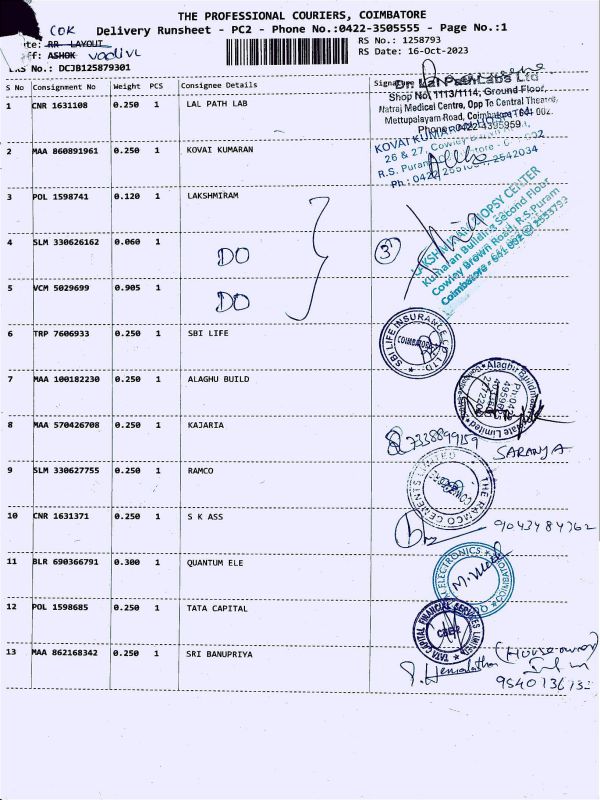 THE PROFESSIONAL COURIERS, COIMBATORE
Delivery Runsheet - PC2 - Phone No.:0422-3505555 - Page No.:1
COK
RR LAYOUT
RS No.: 1258793
ASHOK
RS Date: 16-Oct-2023
No.: DCJB125879301
S No Consignment No Weight PCS Consignee Details Signature
1 CNR 1631108 0.250 1 LAL PATH LAB
Dr. Lal PathLabs Ltd
Shop No. 1113/1114, Ground Floor,
Natraj Medical Centre, Opp To Central Theatre,
Mettupalayam Road, Coimbatore - 641 002.
Phone: 0422 4395959
2 MAA 860891961 0.250 1 KOVAI KUMARAN
KOVAI KUMARAN HOSPITAL
26 & 27, Cowley Brown
R.S. Puram
3 POL 1598741 0.120 1 LAKSHMIRAM
LAKSHMIRAM BIOPSY CENTER
Kumaran Building Second Floor
Cowley Brown Road, R.S.Puram
Coimbatore - 641 002
4 SLM 330626162 0.060 1 DO
3
5 VCM 5029699 0.905 1 DO
6 TRP 7606933 0.250 1 SBI LIFE
SBI LIFE INSURANCE CO LTD
COIMBATORE
7 MAA 100182230 0.250 1 ALAGHU BUILD
8 MAA 570426708 0.250 1 KAJARIA
7338899159
SARANYA
9 SLM 330627755 0.250 1 RAMCO
THE RAMCO CEMENTS LIMITED
10 CNR 1631371 0.250 1 S K ASS
9043484762
11 BLR 690366791 0.300 1 QUANTUM ELE
ELECTRONICS
12 POL 1598685 0.250 1 TATA CAPITAL
TATA CAPITAL FINANCIAL SERVICES LIMITED
13 MAA 862168342 0.250 1 SRI BANUPRIYA
(House owner)